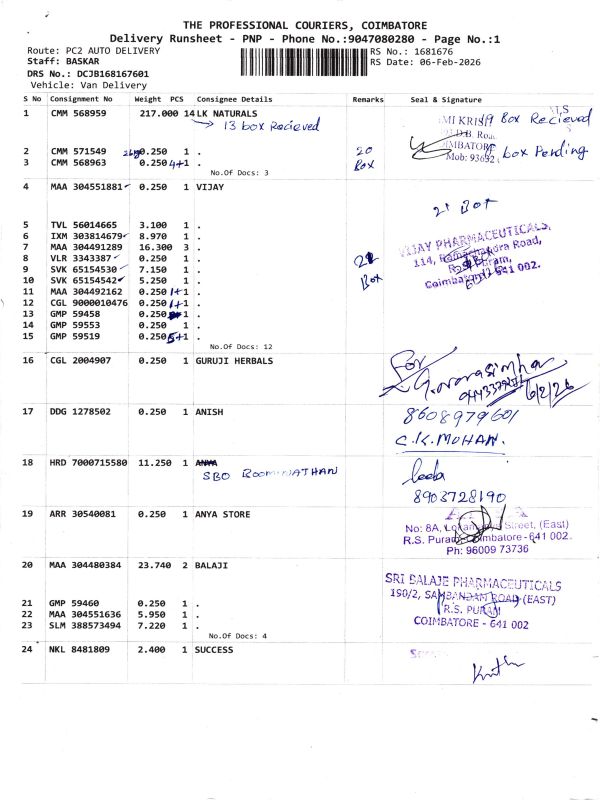 THE PROFESSIONAL COURIERS, COIMBATORE
Delivery Runsheet - PNP - Phone No.:9047080280 - Page No.:1
Route: PC2 AUTO DELIVERY
RS No.: 1681676
Staff: BASKAR
RS Date: 06-Feb-2026
DRS No.: DCJB168167601
Vehicle: Van Delivery
S No Consignment No Weight PCS Consignee Details Remarks Seal & Signature
1 CMM 568959 217.000 14 LK NATURALS
→ 13 box Recieved
19 Box Recieved
2 CMM 571549 0.250 1 .
20 Box
box Pending
3 CMM 568963 0.250 4+1 .
Mob: 93632
No.Of Docs: 3
4 MAA 304551881 0.250 1 VIJAY
21 Box
5 TVL 56014665 3.100 1 .
6 IXM 303814679 8.970 1 .
7 MAA 304491289 16.300 3 .
8 VLR 3343387 0.250 1 .
9 SVK 65154530 7.150 1 .
10 SVK 65154542 5.250 1 .
11 MAA 304492162 0.250 1+1 .
12 CGL 9000010476 0.250 1+1 .
13 GMP 59458 0.250 1 .
14 GMP 59553 0.250 1 .
15 GMP 59519 0.250 5+1 .
No.Of Docs: 12
Box
VIJAY PHARMACEUTICALS,
114, Ramachandra Road,
R.S. Puram,
Coimbatore - 641 002.
16 CGL 2004907 0.250 1 GURUJI HERBALS
For
6/2/26
17 DDG 1278502 0.250 1 ANISH
8608979601
C.K. MOHAN.
18 HRD 7000715580 11.250 1 ANYA
SBO BOOMINATHAN
8903728190
19 ARR 30540081 0.250 1 ANYA STORE
No: 8A, Street, (East)
R.S. Puram, Coimbatore - 641 002.
Ph: 96009 73736
20 MAA 304480384 23.740 2 BALAJI
SRI BALAJE PHARMACEUTICALS
190/2, SAMBANDAM ROAD (EAST)
R.S. PURAM
COIMBATORE - 641 002
21 GMP 59460 0.250 1 .
22 MAA 304551636 5.950 1 .
23 SLM 388573494 7.220 1 .
No.Of Docs: 4
24 NKL 8481809 2.400 1 SUCCESS